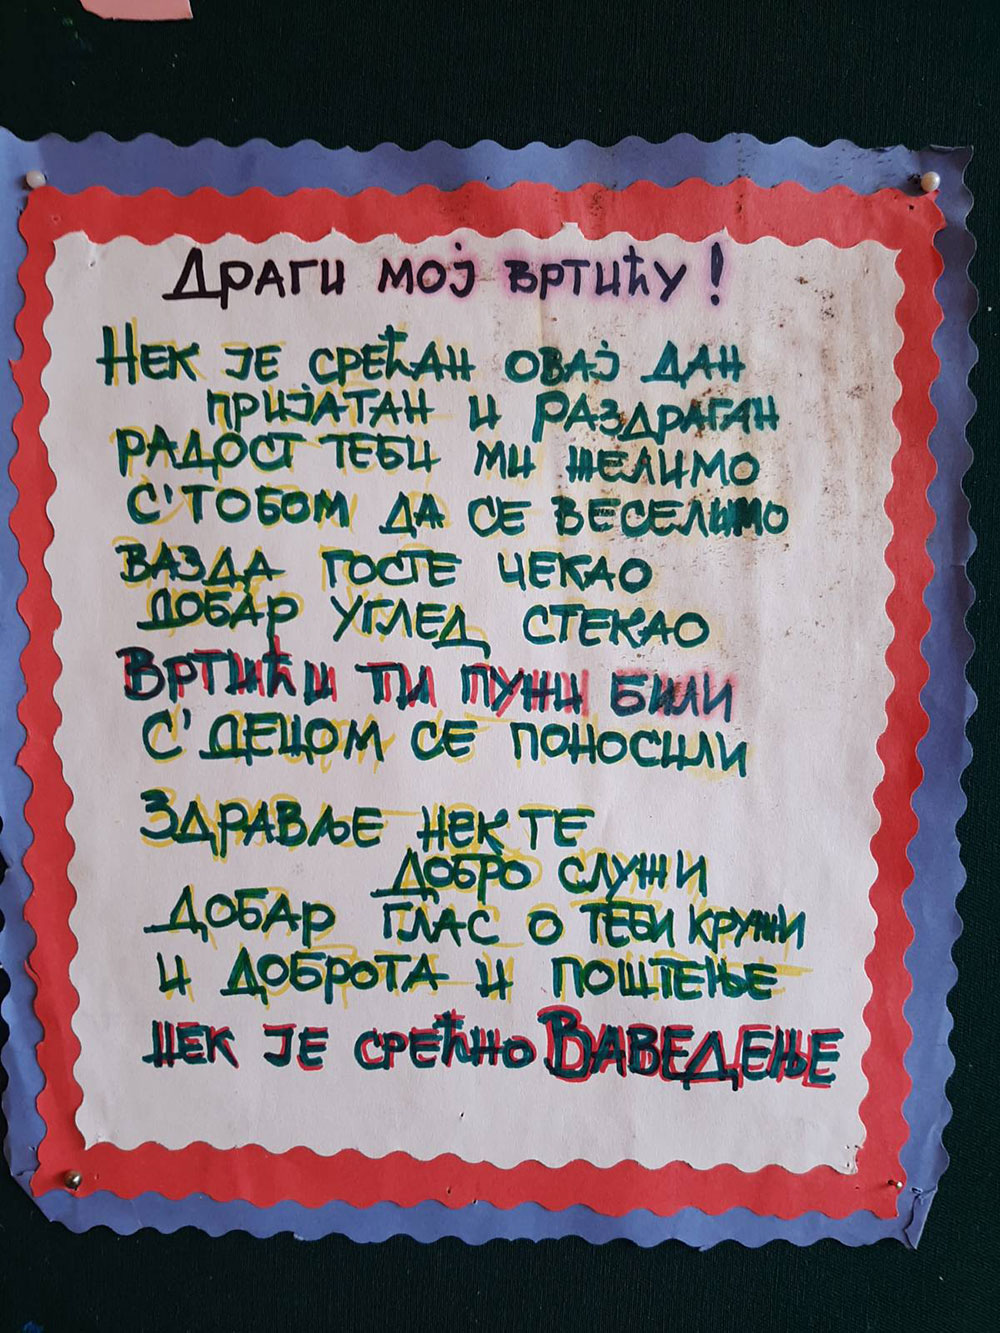 Драги мој вртићу!
Нек је срећан овај дан
пријатан и раздраган
радост теби ми желимо
с'тобом да се веселимо
вазда госте чекао
добар углед стекао
Вртићи ти пужи били
с' децом се поносили
Здравље нек те
добро служи
добар глас о теби кружи
и доброта и поштење
нек је срећно Ваведење